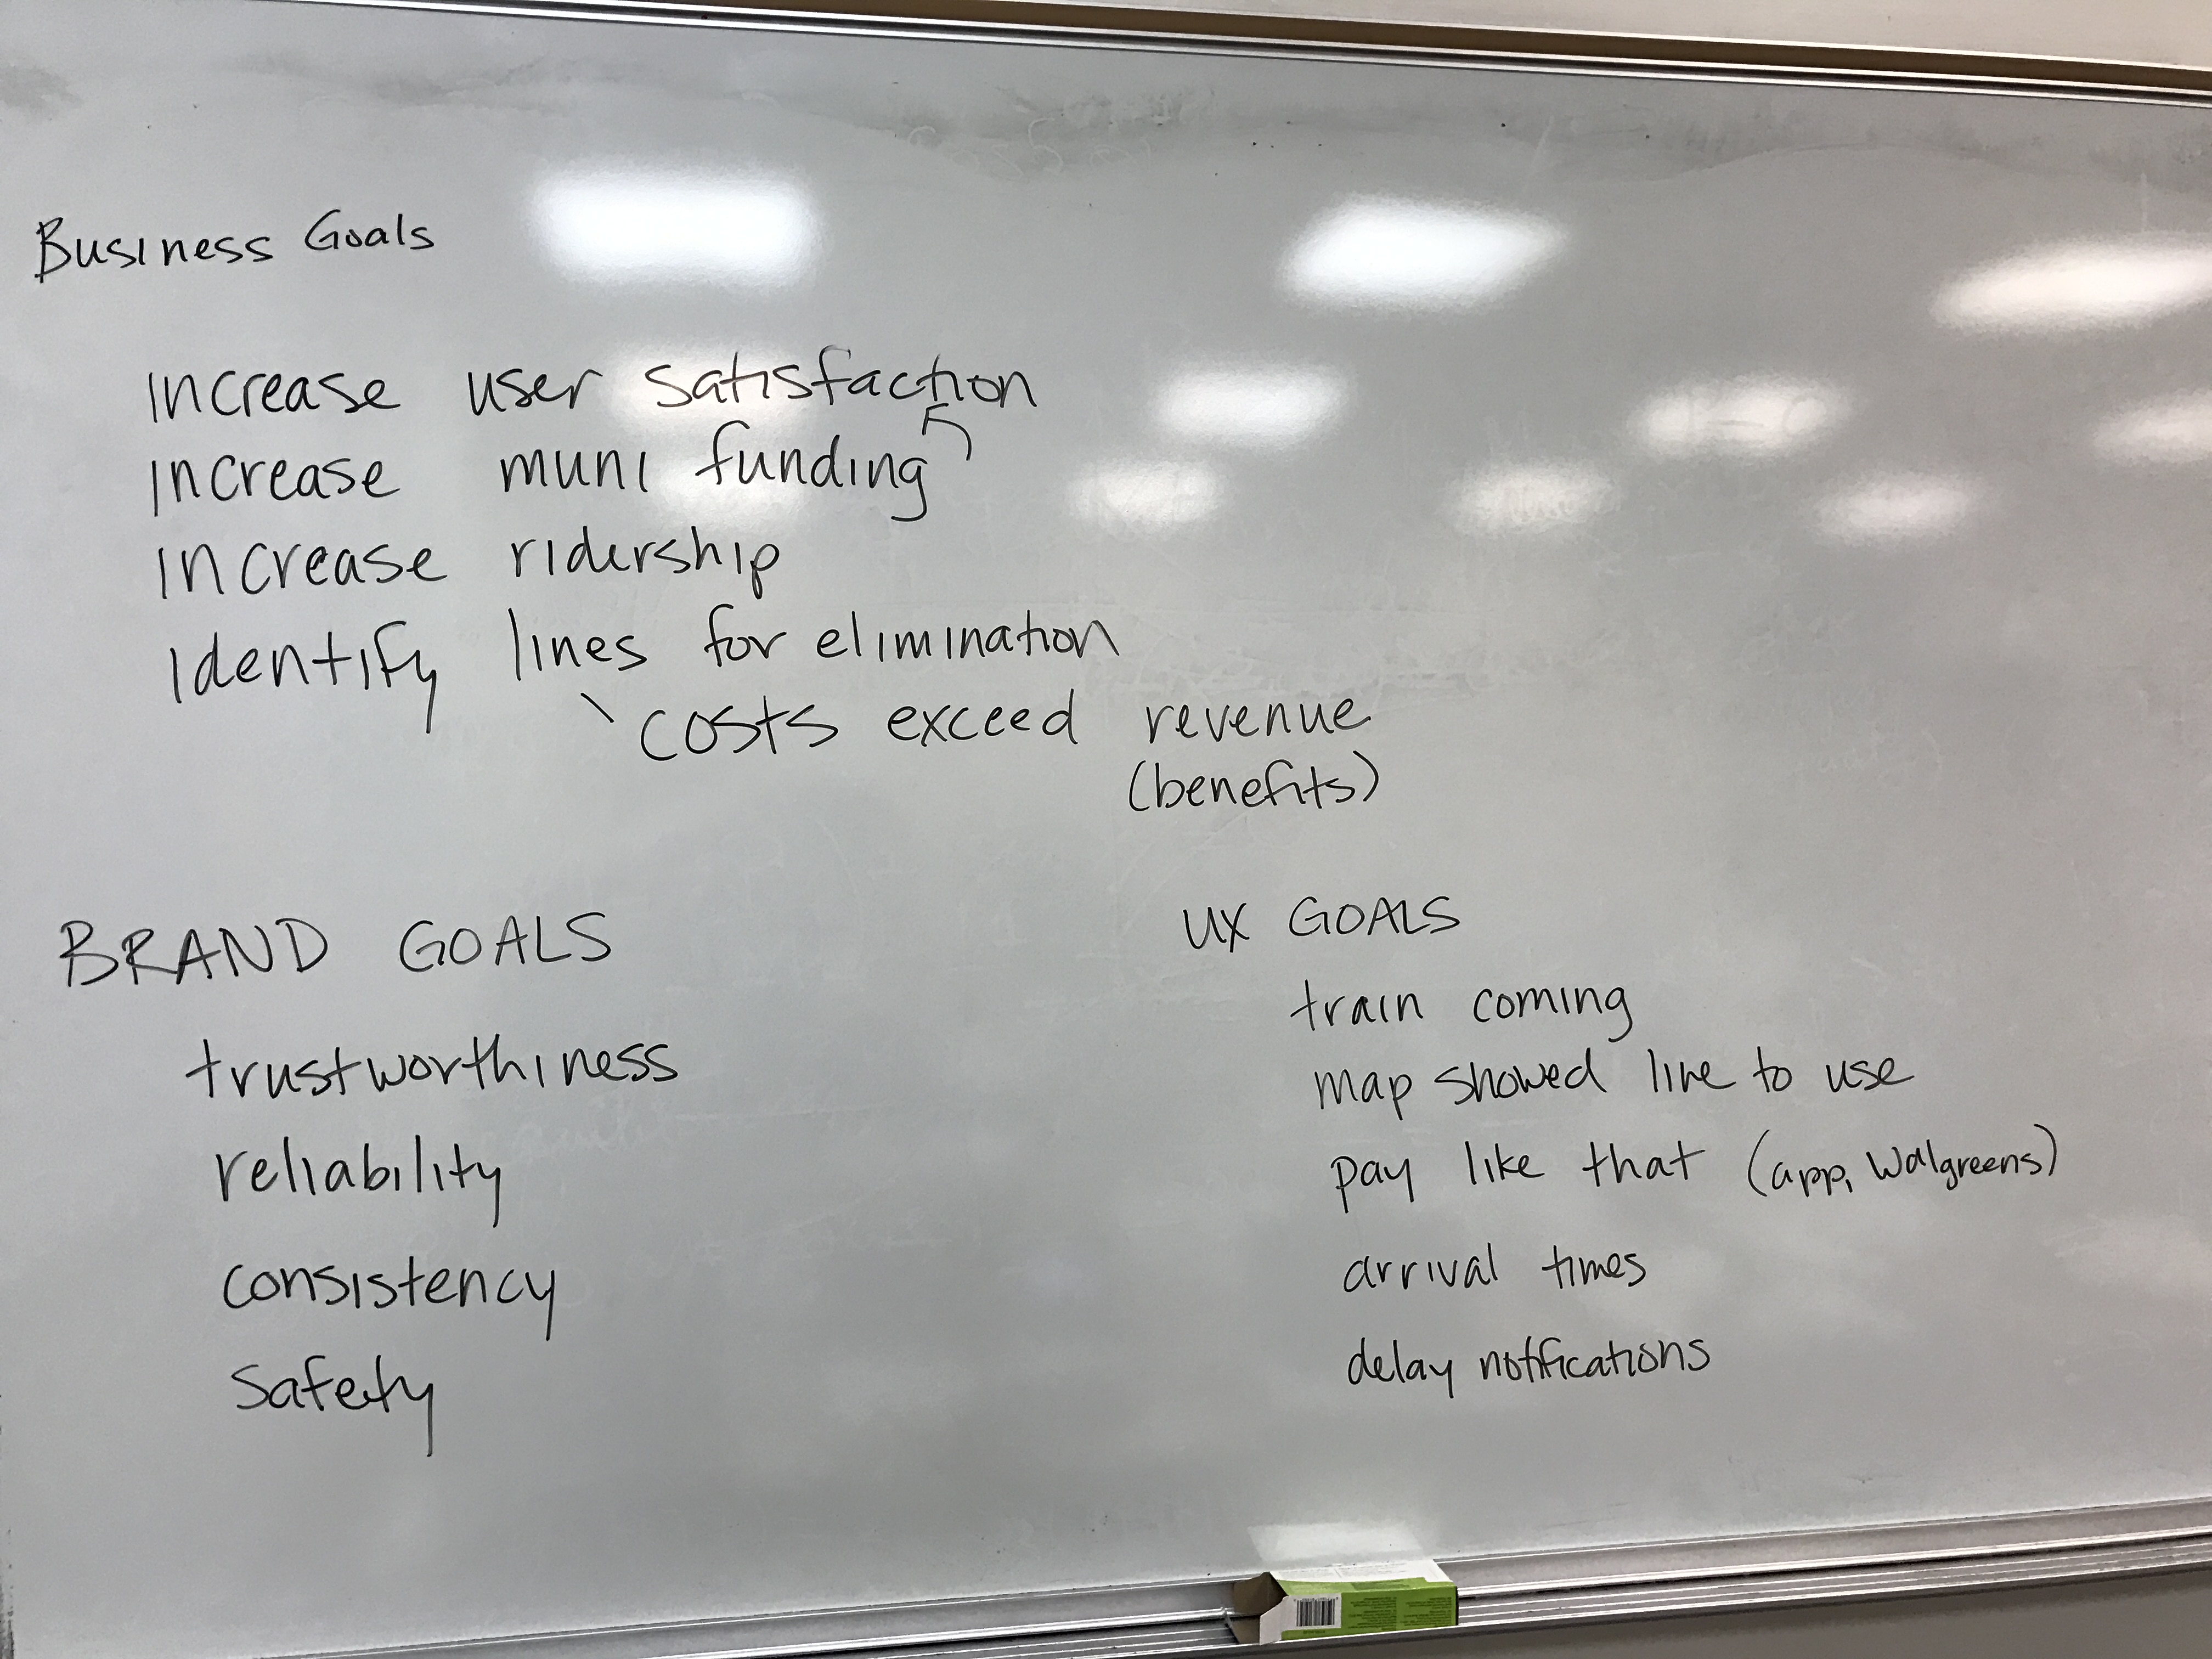 Business Goals
increase user satisfaction
increase muni funding
increase ridership
identify lines for elimination
costs exceed revenue
(benefits)
BRAND GOALS
trustworthiness
reliability
consistency
safety
UX GOALS
train coming
map showed line to use
pay like that (app, Walgreens)
arrival times
delay notifications